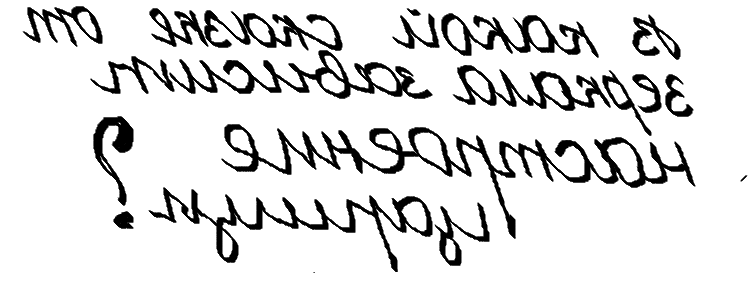 в какой сказке от
зеркала зависит
настроение
царицы?